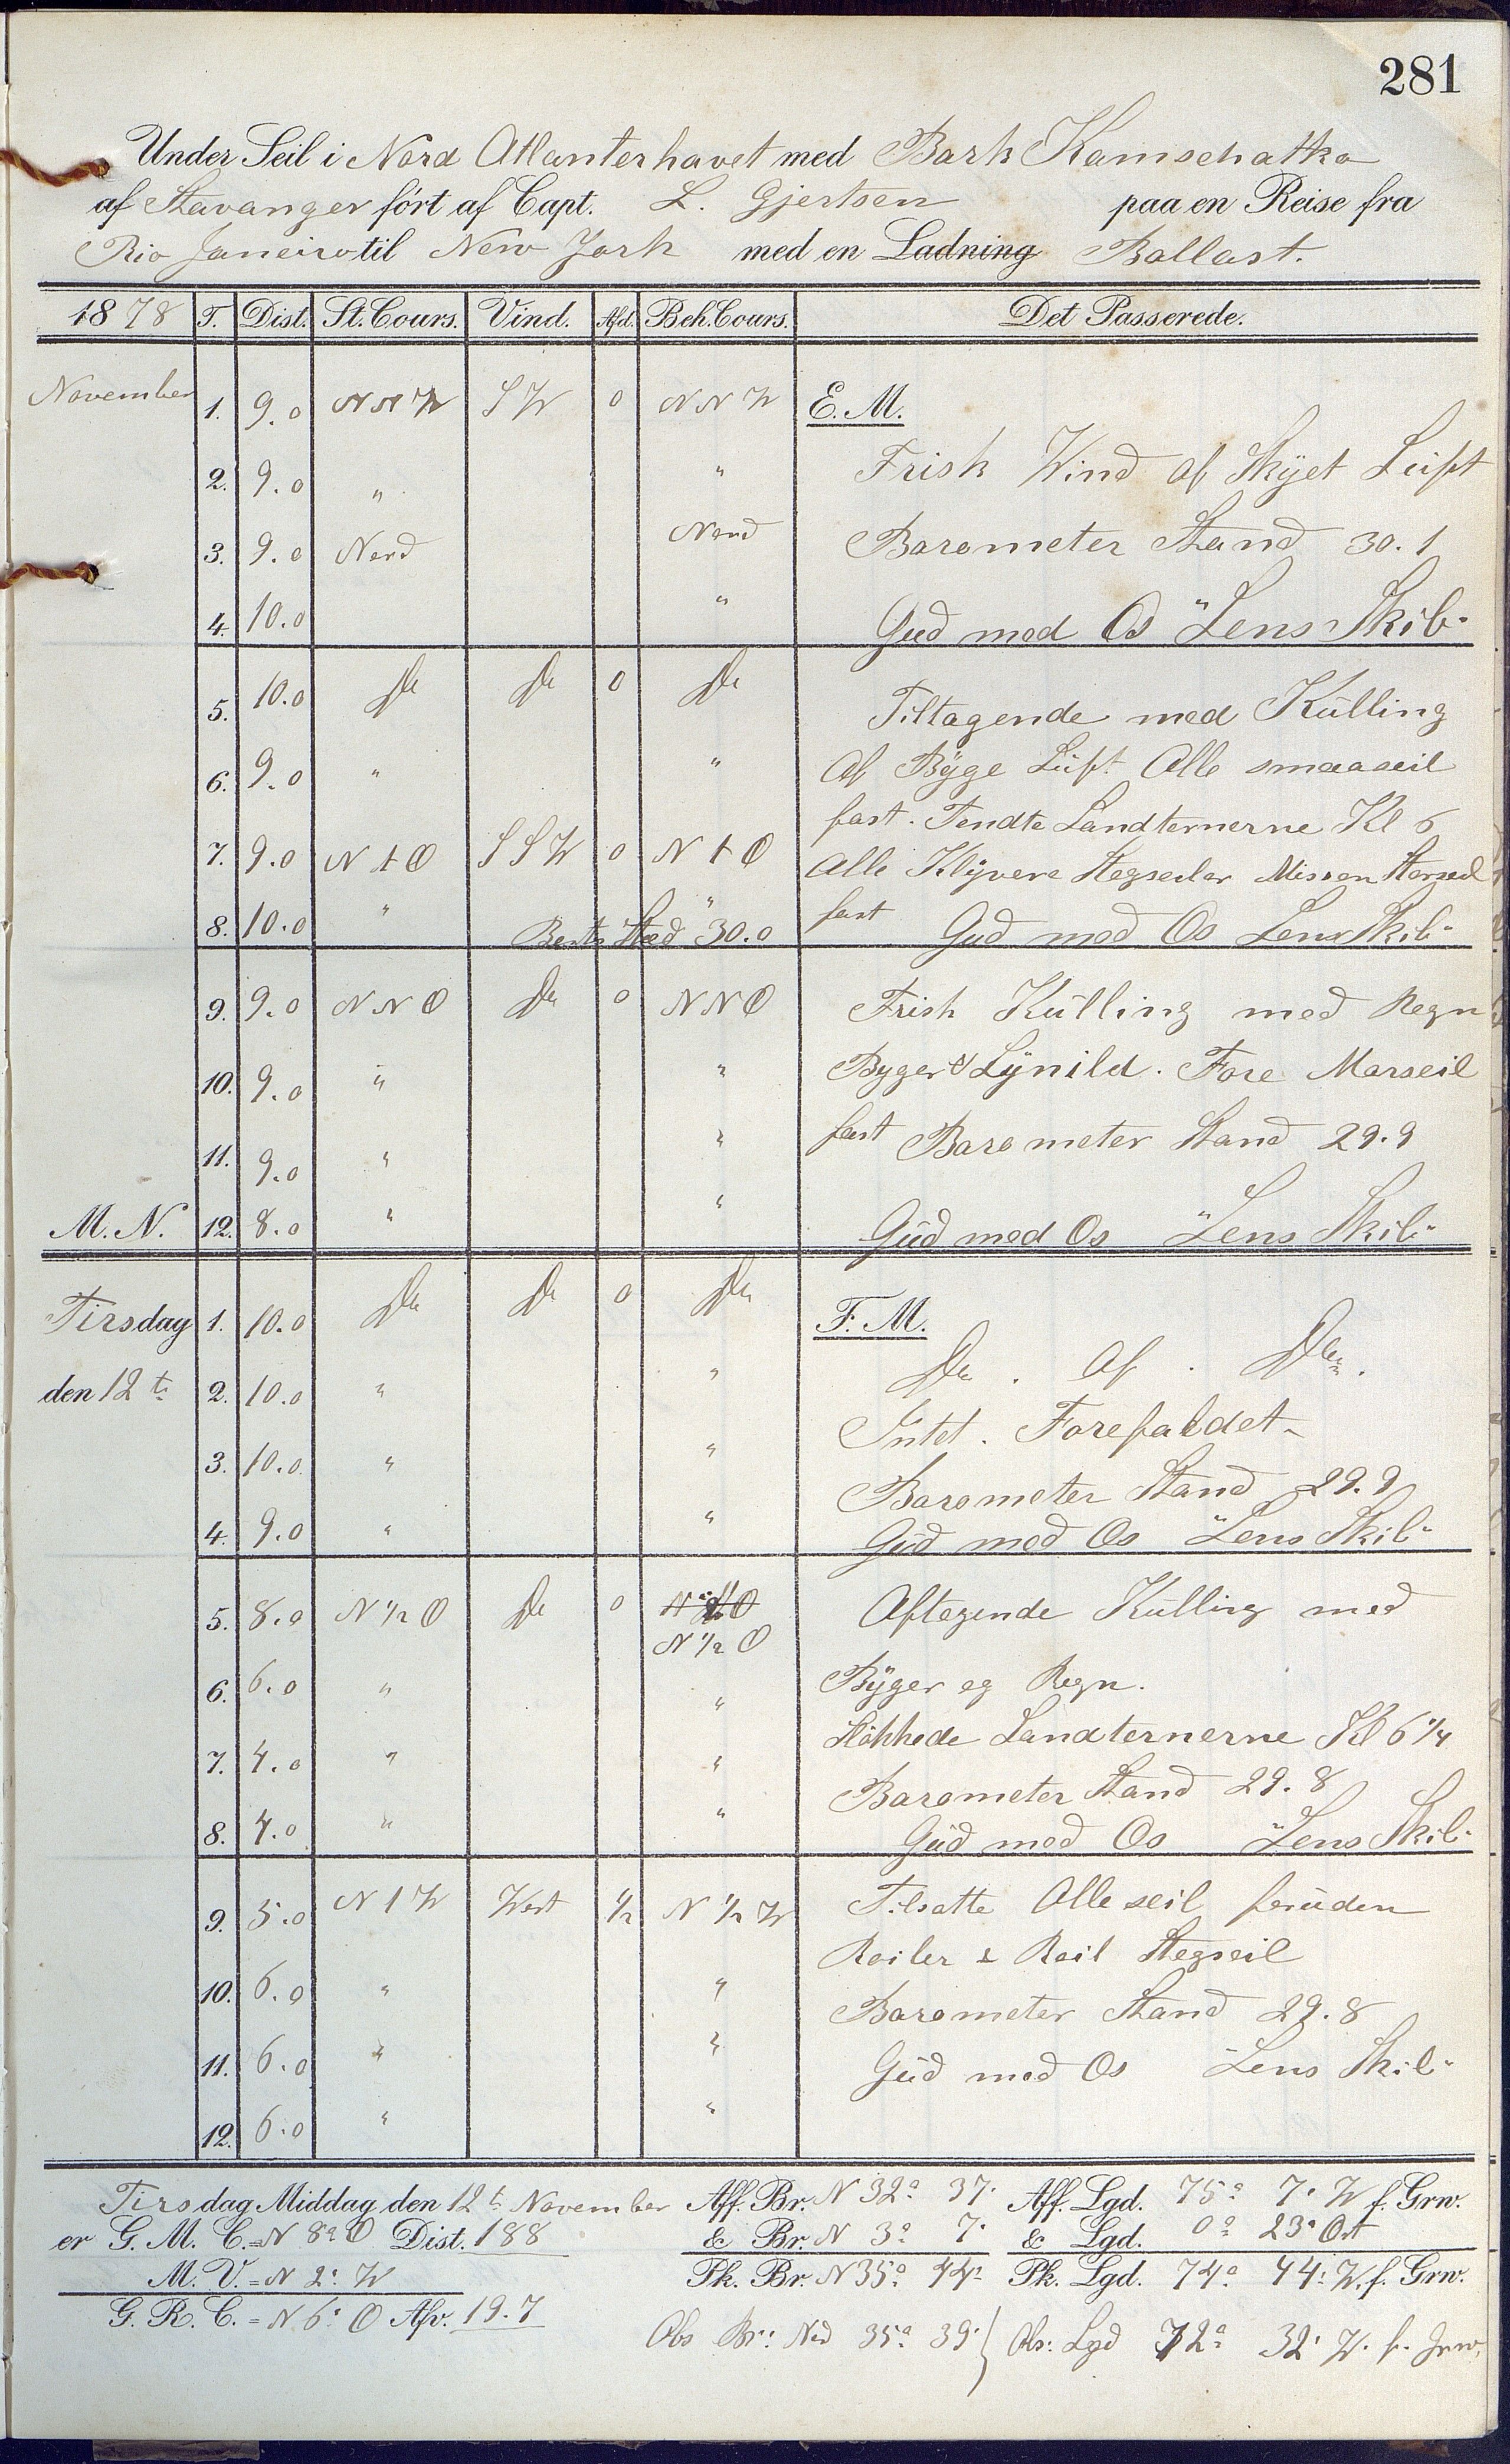 281
Under Seil i Nord Atlanterhavet med Bark Kamschatka
af Stavanger ført af Capt. L. Gjertsen paa en Reise fra
Rio Janeiro til New York med en Ladning Ballast.
1878 T. Dist. St. Cours. Vind. Afd. Beh. Cours. Det Passerede.
November 1. 9.0 NNW SW 0 NNW E. M.
2. 9.0 " " Frisk Wind af Skÿet Luft
3. 9.0 Nord Nord Barometer Stand 30.1
4. 10.0 " Gud med Os "Lens Skib"
5. 10.0 Do Do 0 Do Tiltagende med Kulling
6. 9.0 " " af Bÿge Luft Alle smaaseil
fast. Tendte Landternerne Kl 6
7. 9.0 N t O SSW 0 N t O Alle Klÿvere Stagseiler Missan Storseil
8. 10.0 " " 30.0 fast Gud med Os Lens Skib"
9. 9.0 NNO Do 0 NNO Frisk Kulling med Regn
10. 9.0 " " Byger & Lÿnild. Fore Marseil
11. 9.0 " " fast Barometer Stand 29.9
M. N. 12. 8.0 " " Gud med Os "Lens Skib"
Tirsdag 1. 10.0 Do Do 0 Do F. M.
den 12te 2. 10.0 " " Do . Af . Do.
Intet . Forefaldet
3. 10.0 " " Barometer Stand 29.9
4. 9.0 " " Gud med Os "Lens Skib"
5. 8.0 N 1/2 O Do 0 Aftagende Kulling med
N 1/2 O
6. 6.0 " " Bÿger og Regn.
Slökkede Landternerne Kl 6 1/4
7. 4.0 " " Barometer Stand 29.8
8. 4.0 " " Gud med Os "Lens Skib"
9. 5.0 N 1 W West 1/2 N 1/2 W Tilsatte Alle seil foruden
Roiler & Roil Stagseil
10. 6.0 " " Barometer Stand 29.8
11. 6.0 " " Gud med Os "Lens Skib"
12. 6.0 " "
Tirsdag Middag den 12te November Aff. Br. N 32° 37' Aff. Lgd. 75° 7' W f. Grw.
er G. M. C. = N 8° O Dist. 188 & Br. N 3° 7' & Lgd. 0° 23' Ost
M. V. = N 2° W Pk. Br. N 35° 44' Pk. Lgd. 74° 44' W. f. Grw.
G. R. C. = N 6° O Afv. 19.7
Obs Br: Nd 35° 39' } Obs: Lgd 72° 32' W. f. Grw.